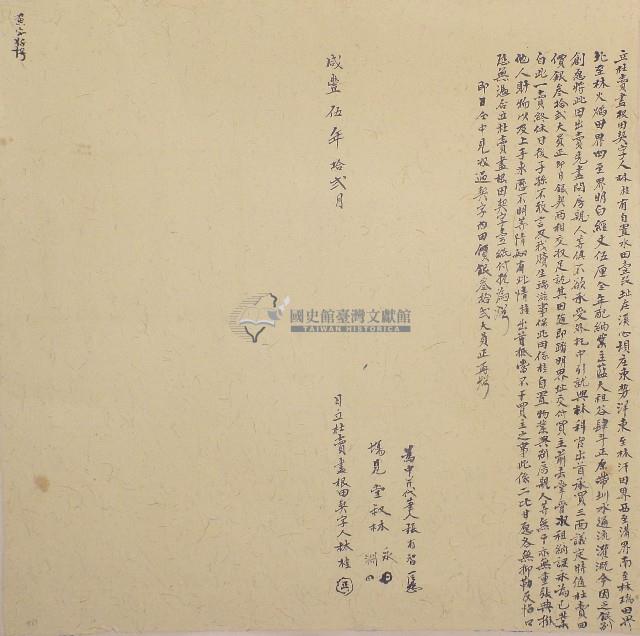 立杜賣盡根田契字人林桂有自置水田壹段址在溪心埧庄東勢洋東至林汗田界西至溝界南至林瑞田界
北至林火焰田界四至界明白經丈伍厘全年配納業主藍大租谷肆斗正原帶圳水通流灌溉今因乏銀別
創愿將此田出賣先盡問房親人等俱不欲承受外托中引就與林科官出首承買三面議定時值杜賣田
價銀叁拾弍大員正即日銀契兩相交收足訖其田隨即踏明界址交付買主前去掌管收租納課永為己業
自此一賣終休日後子孫不敢言及找贖生端滋事保此田係桂自置物業與別房親人等無干亦無重張典掛
他人財物以及上手來歷不明等情如有此情桂出首抵當不干買主之事此係二比甘愿各無抑勒反悔口
恐無憑合立杜賣盡根田契字壹紙付執為炤
即日仝中見收過契字內田價銀叁拾弍大員正再炤
咸豐伍年拾弍月
為中并代筆人張有
場見堂叔林
永
淵
日立杜賣盡根田契字人林桂
國史館臺灣文獻館
TAIWAN HISTORICA